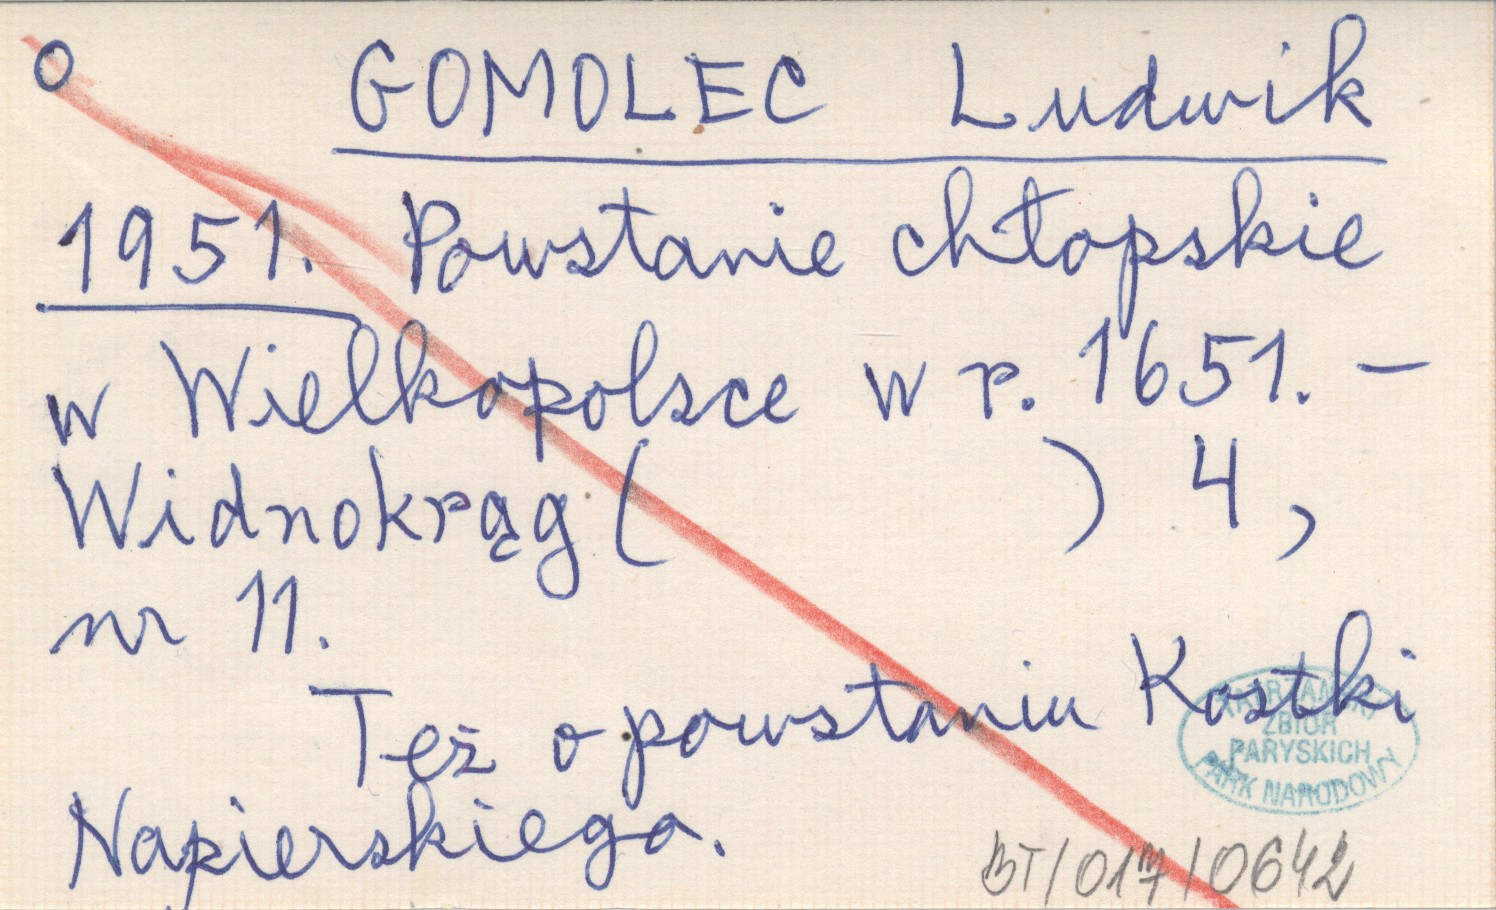 o GOMOLEC Ludwik
1951. Powstanie chłopskie
w Wielkopolsce w r. 1651. –
Widnokrąg ( ) 4,
nr 11.
Też o powstaniu Kostki
Napierskiego.
ZBIÓR
PARYSKICH
PARK NARODOWY
BT/017/0642